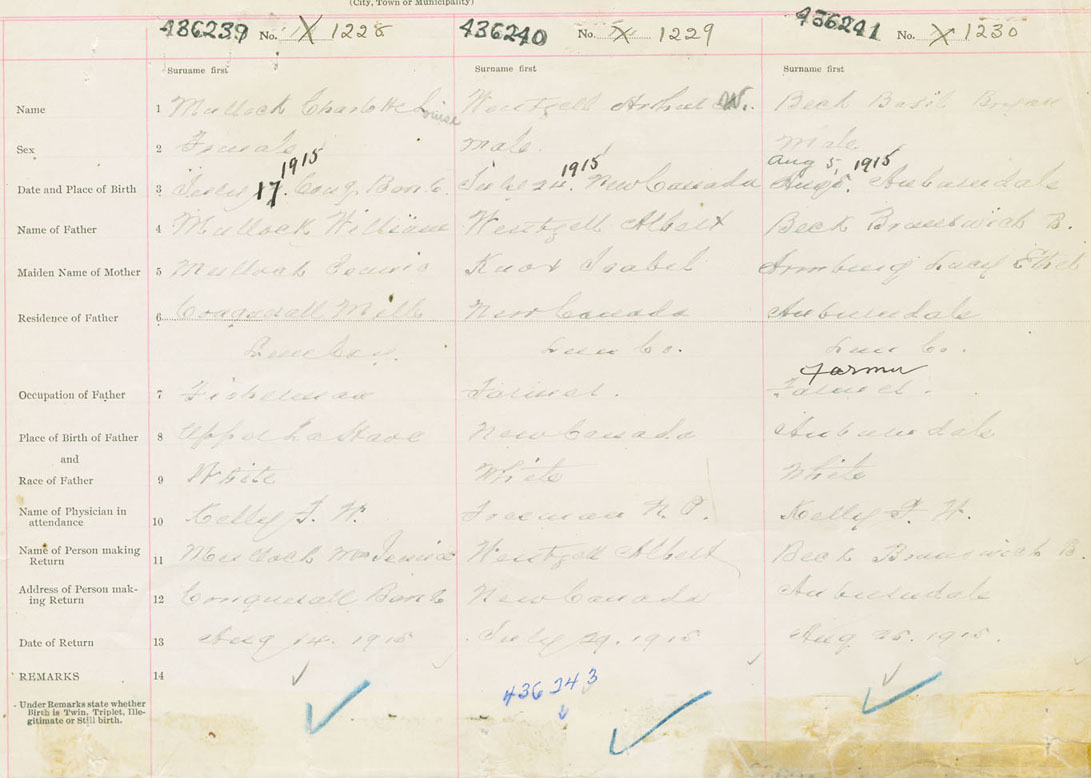 (City, Town or Municipality)
436239 No. IX 1228 436240 No. IX 1229 436241 No. X 1230
Surname first Surname first Surname first
Name 1 Mullock Charlotte Louise Wentzell Arthur W. Beck Basil Bryan
Sex 2 Female Male. Male
1915 1915 Aug 5, 1915
Date and Place of Birth 3 17. Conq. Bank. 24. New Canada Aug 5. Auburndale
Name of Father 4 Mullock William Wentzell Albert Beck Brunswick B.
Maiden Name of Mother 5 Mullock Knox Isabel Lucy Ethel
Residence of Father 6 Conquerall Mills New Canada Auburndale
Lun Co. Lun Co.
Farmer
Occupation of Father 7 Fisherman Farmer. Farmer.
Place of Birth of Father 8 Upper LaHave New Canada Auburndale
and
Race of Father 9 White White White
Name of Physician in
attendance 10 Kelly F. W. Freeman N. P. Kelly F. W.
Name of Person making
Return 11 Mullock Mrs Wentzell Albert Beck Brunswick B.
Address of Person mak-
ing Return 12 Conquerall Bank New Canada Auburndale
Date of Return 13 Aug 14. 1915 July 29. 1915 Aug 25. 1915.
REMARKS 14
436243
Under Remarks state whether
Birth is Twin, Triplet, Ille-
gitimate or Still birth.